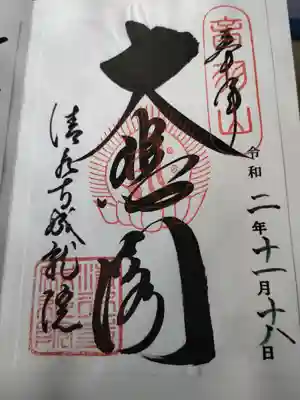 音羽山
奉拝
令和二年十一月十八日
大悲閣
清水寺成就院